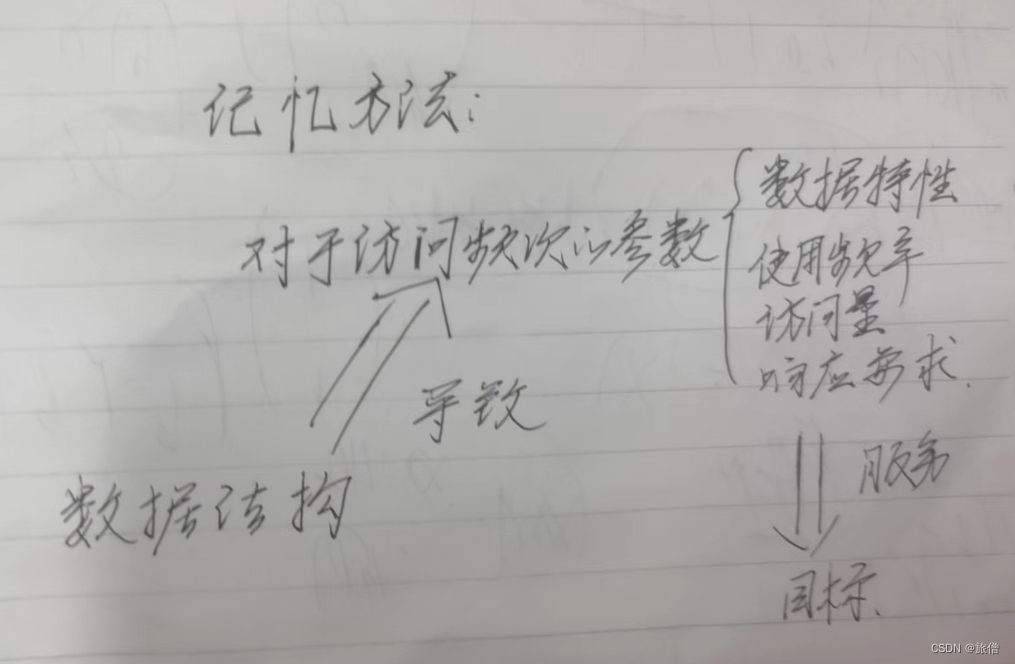 记忆方法:
对于访问频次的参数
数据特性
使用频率
访问量
响应要求.
导致
服务
数据结构
目标.
CSDN @旅僧